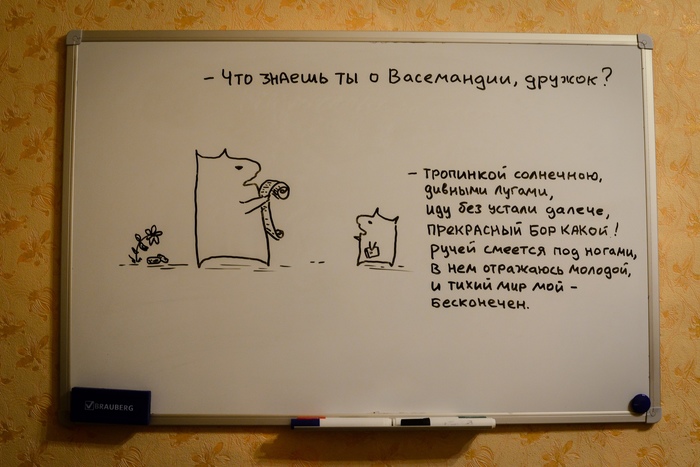 – Что знаешь ты о Васемандии, дружок?
– Тропинкой солнечною,
дивными лугами,
иду без устали далече,
прекрасный бор какой!
ручей смеется под ногами,
в нем отражаюсь молодой,
и тихий мир мой –
бесконечен.
BRAUBERG